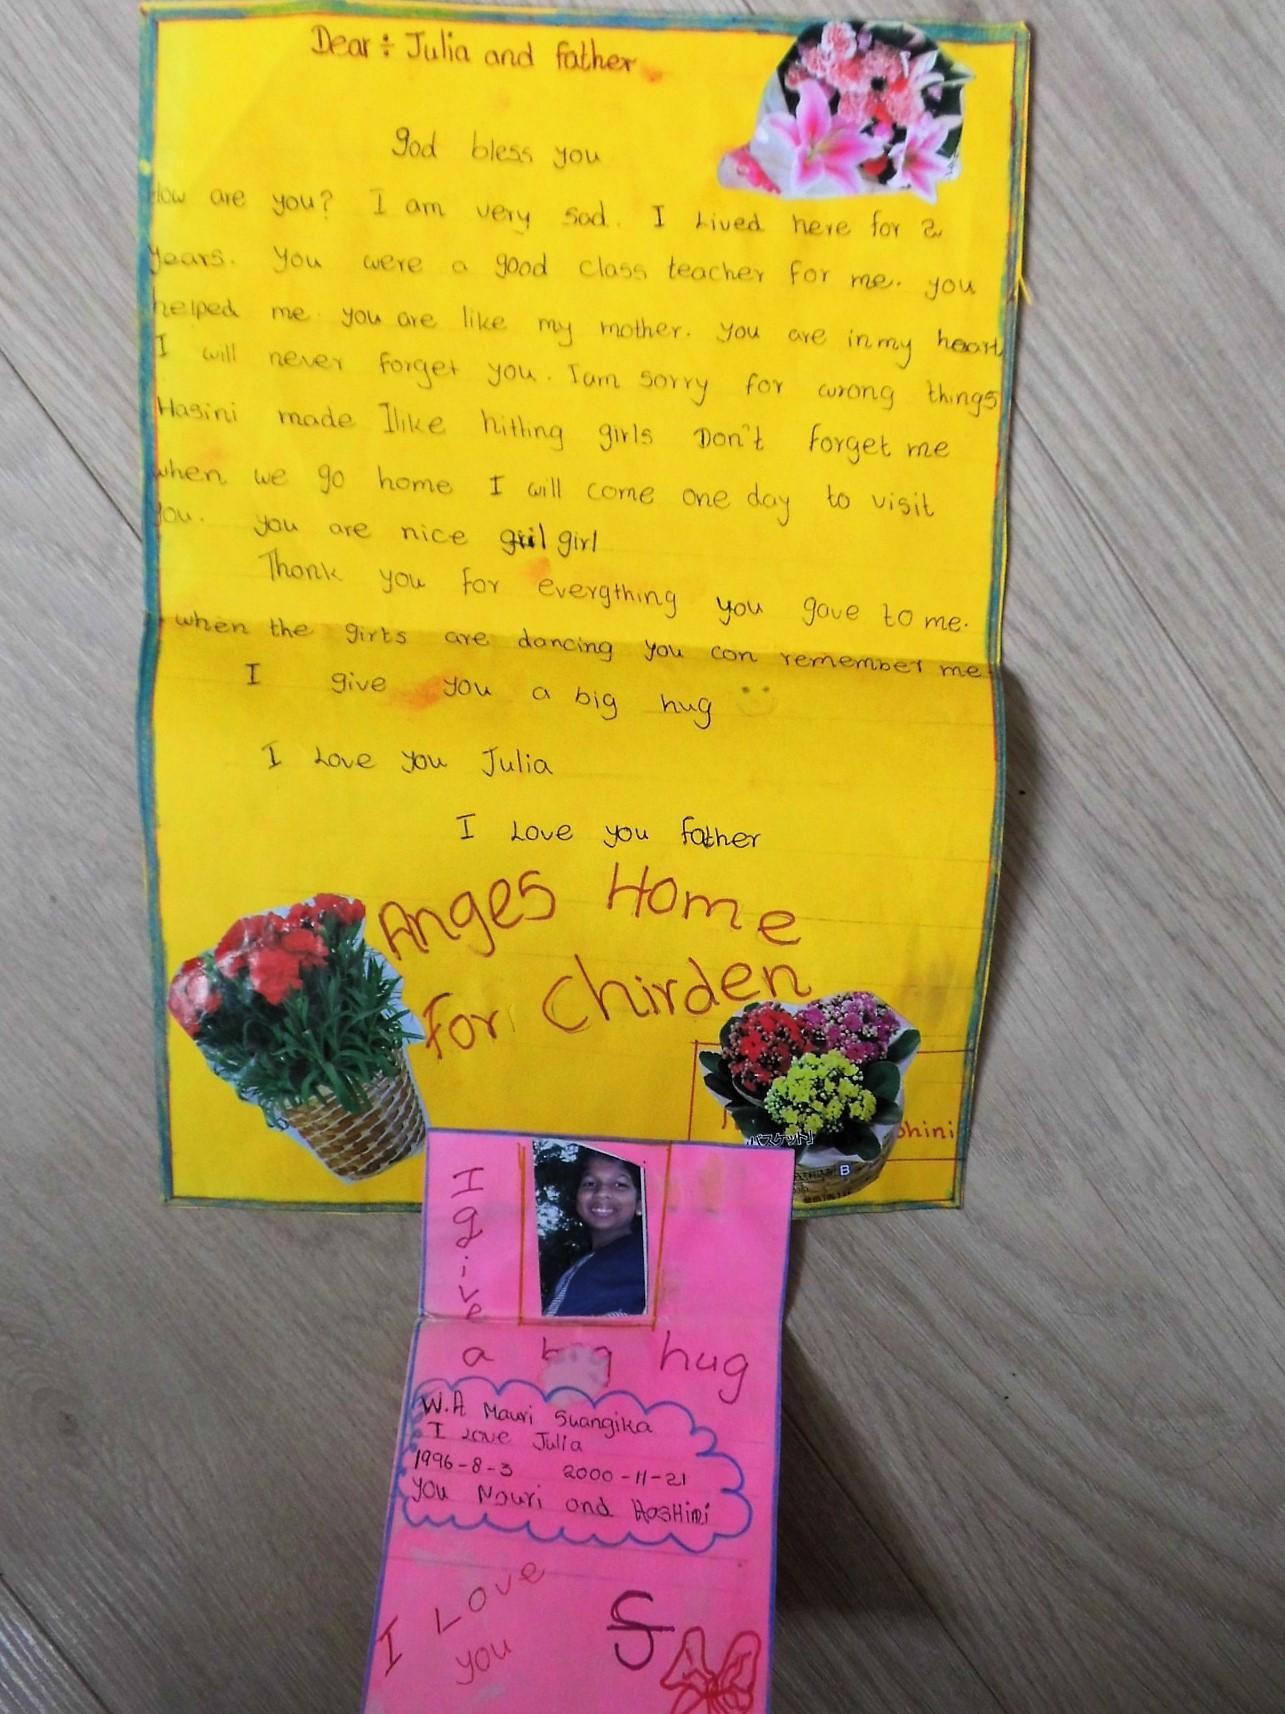 Dear ÷ Julia and father
god bless you
How are you? I am very sad. I Lived here for 2
years. You were a good class teacher for me. you
helped me. you are like my mother. you are in my heart
I will never forget you. I am sorry for wrong things
Hasini made I like hitting girls Don't forget me
when we go home I will come one day to visit
you. you are nice girl
Thank you for evergthing you gave to me.
when the girls are dancing you can remember me
I give you a big hug
I Love you Julia
I Love you father
Anges Home
For Chirden
バスケット」
B
ohini
I
give
a big hug
W.A Mauri Suangika
I Love Julia
1996-8-3 2000-11-21
you Nauri and HasHini
I Love
you